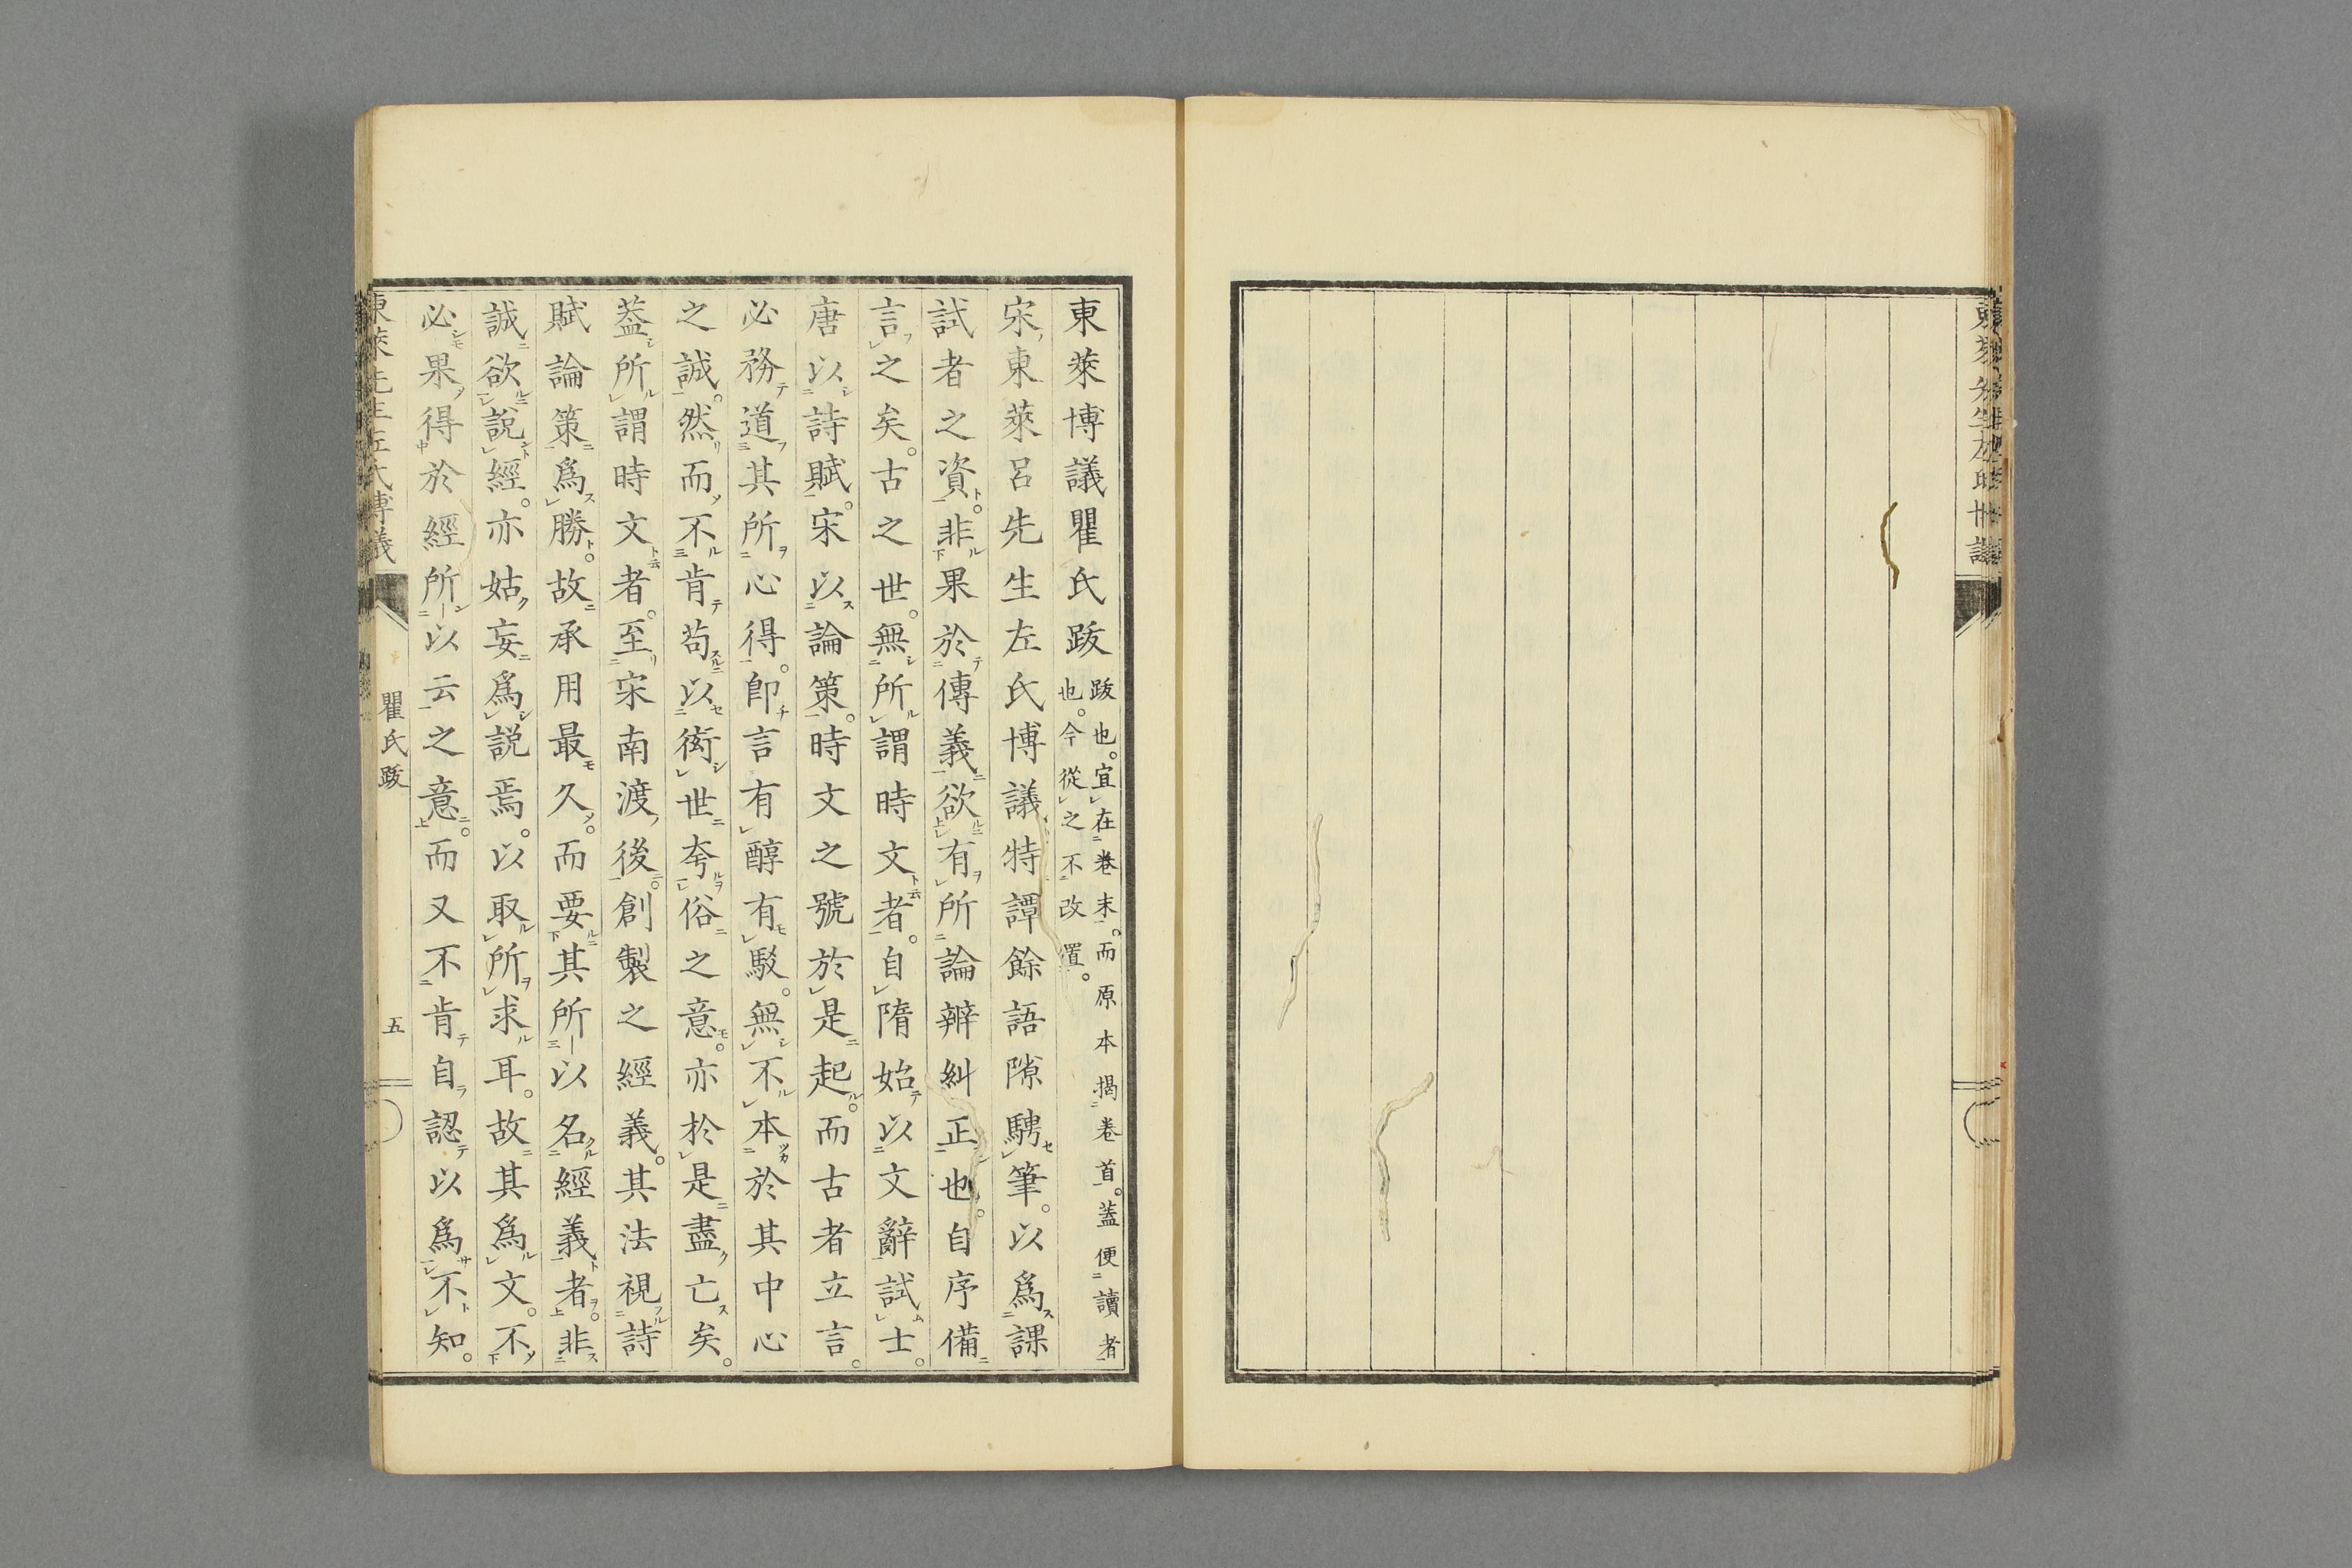 東萊博議瞿氏跋
跋也。宜在卷末。而原本揭卷首。蓋便讀者
也。今從之不改置。
宋東萊呂先生左氏博議特譚餘語隙騁筆。以爲課
試者之資。非果於傳義欲有所論辨糾正也。自序備
言之矣。古之世。無所謂時文者。自隋始以文辭試士。
唐以詩賦。宋以論策。時文之號於是起。而古者立言。
必務道其所心得。卽言有醇有駁。無不本於其中心
之誠。然而不肯苟以衒世夸俗之意。亦於是盡亡矣。
葢所謂時文者。至宋南渡後創製之經義。其法視詩
賦論策爲勝。故承用最久。而要其所以名經義者。非
誠欲說經。亦姑妄爲說焉。以取所求耳。故其爲文。不
必果得於經所以云之意。而又不肯自認以爲不知。
瞿氏跋
五